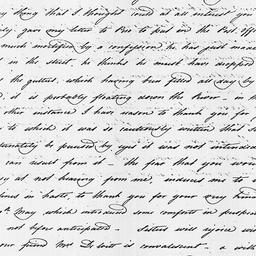 thing that I thought could at all interest you
gave my letter to Bis to put in the Post Off
much mortified by a confession he has just made
in the street, he thinks he must have dropped
the gutter, which having been filled all day by
it is probably floating down the River. in th
other instance I have reason to thank you for
to which it was so cautiously written that sh
fortunately be perused by eyes it was not intended
can result from it. - the fear that you wou
at not hearing from me, induces me to
lines in haste, to thank you for your very kind
May which introduced some comfort in prospe
not before anticipated - Sisters will rejoice wi
our friend Mrs De Witt is convalescent - a with